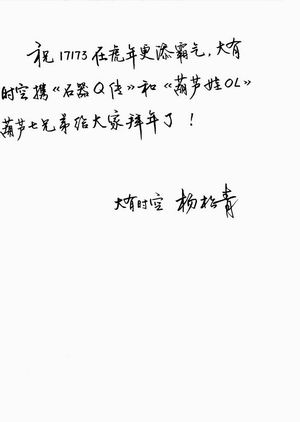 祝17173在虎年更添霸气，大有
时空携《石器Q传》和《葫芦娃OL》
葫芦七兄弟给大家拜年了！
大有时空 杨松青